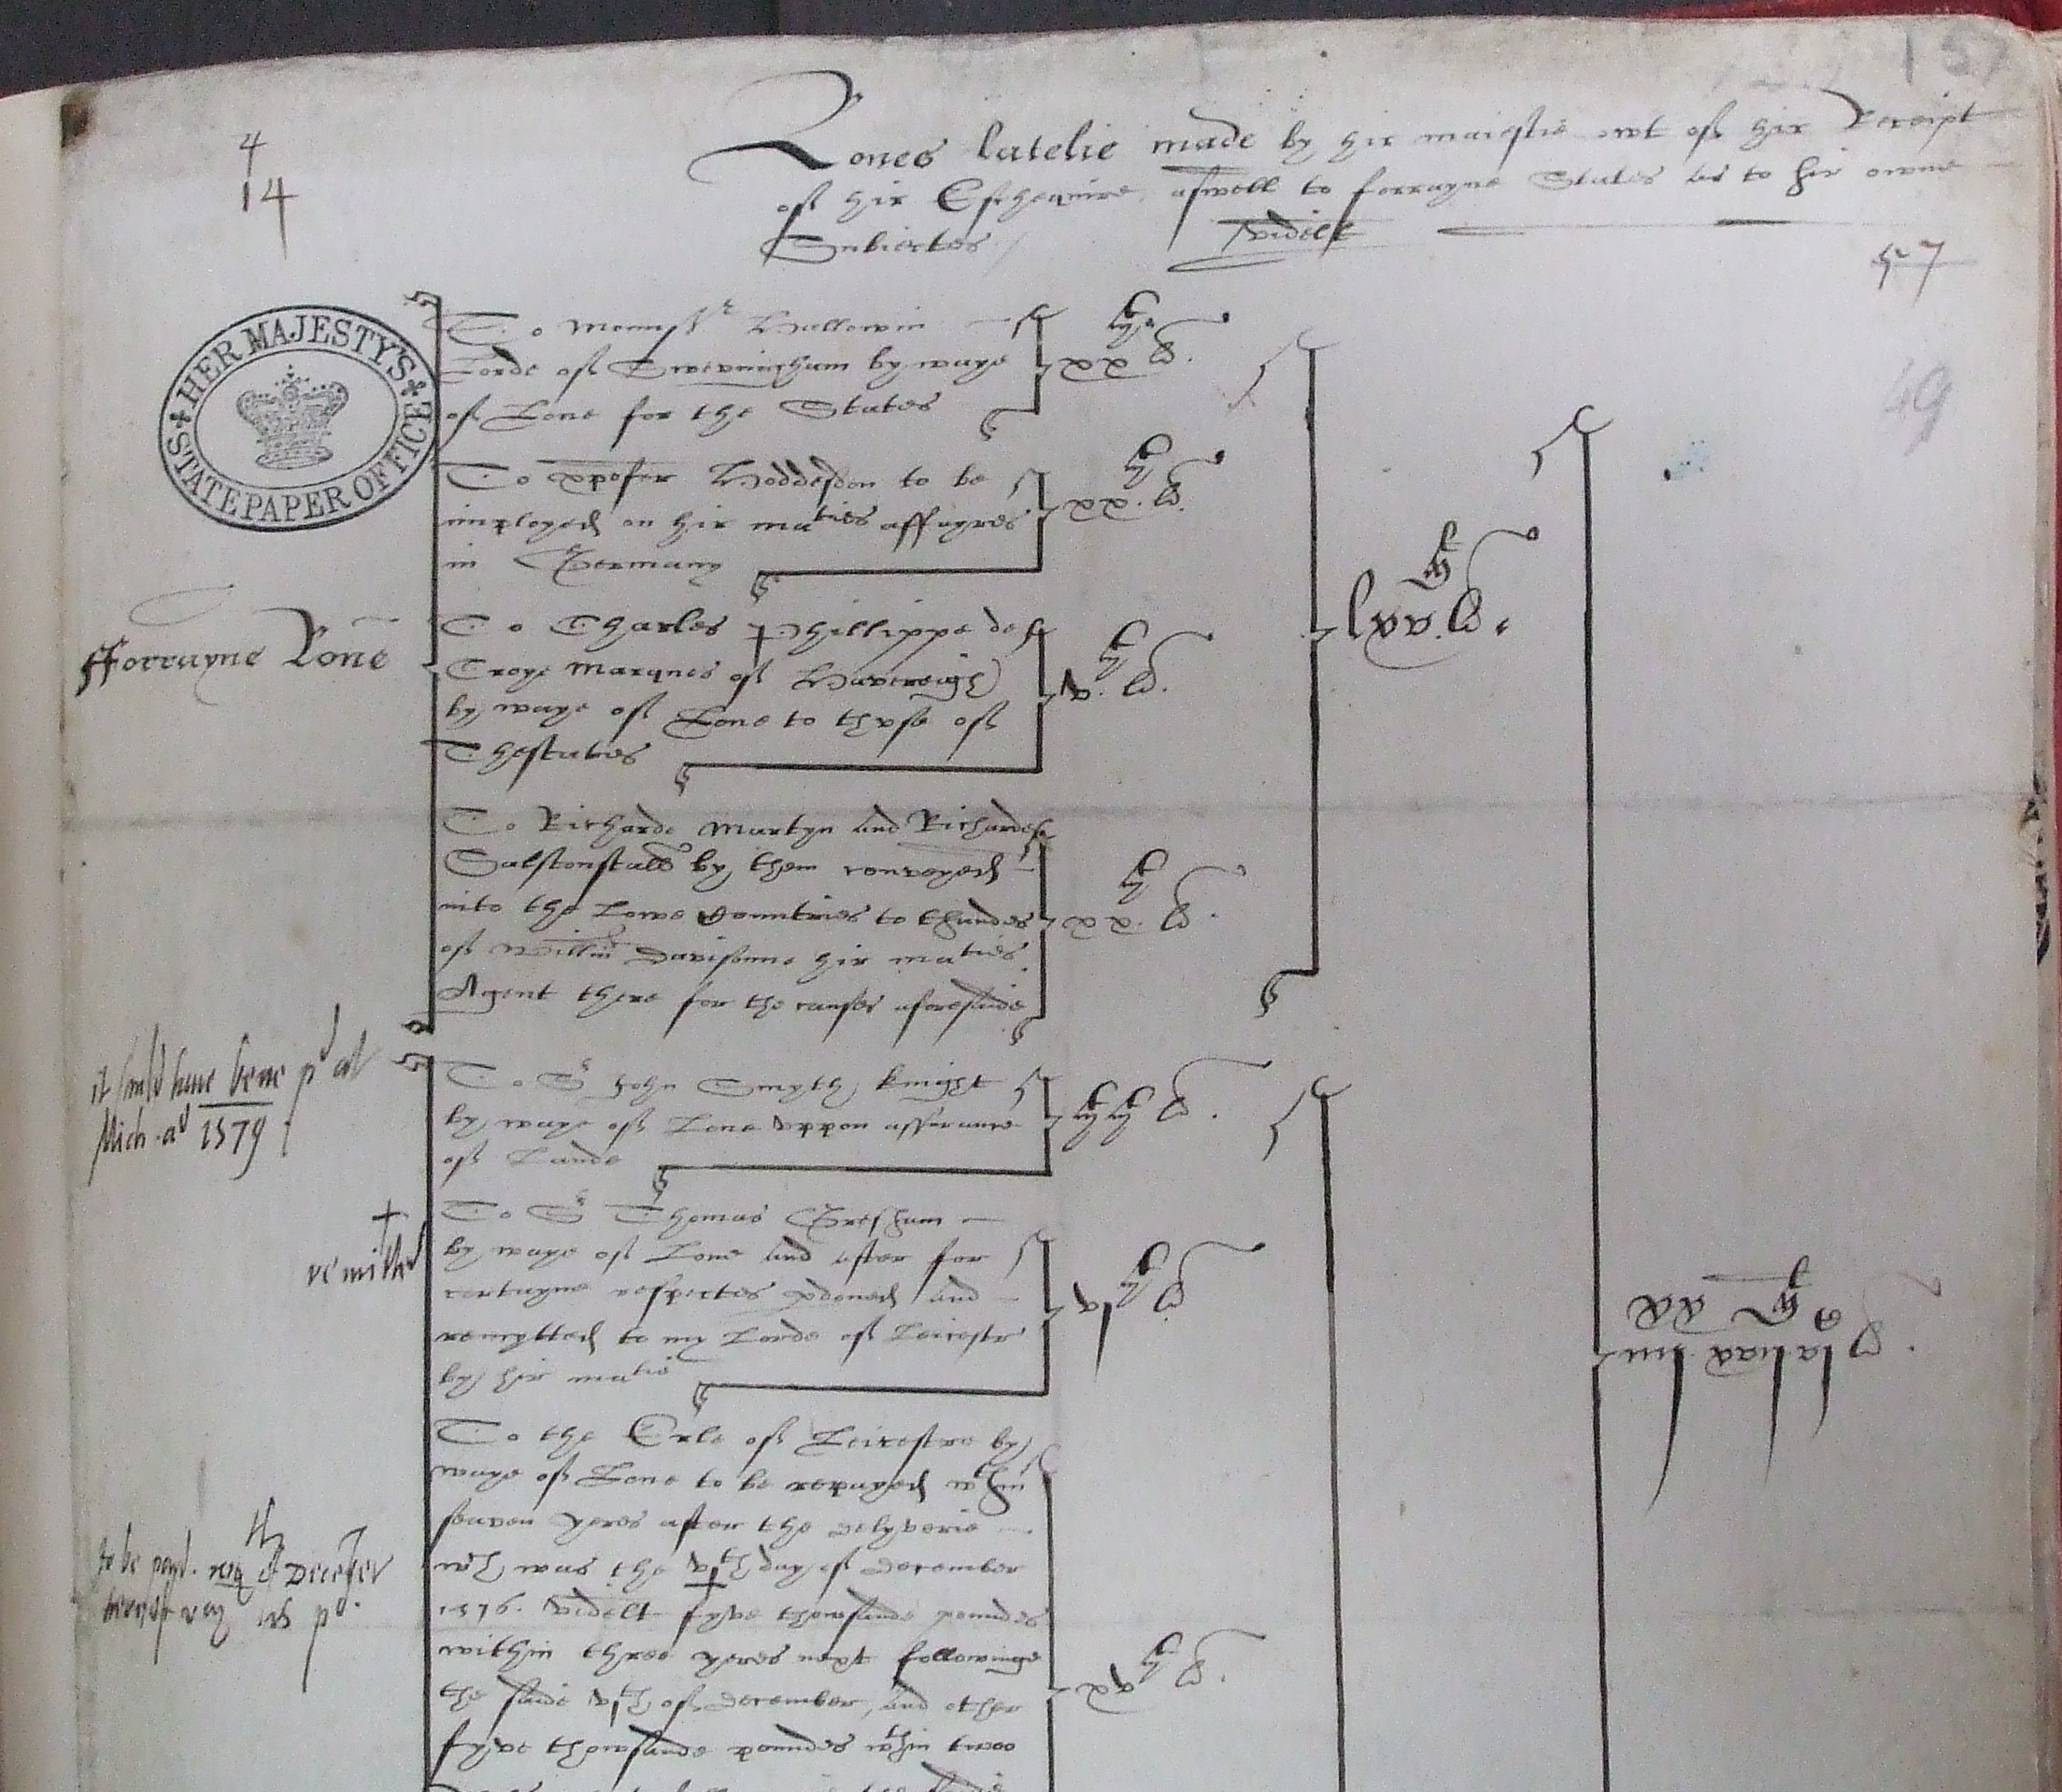 157
4
14
Lones latelie made by hir maiestie owt of hir Receipt
of hir Eschequire, aswell to forrayne States as to hir owne
Subiectes / videlt
57
49
HER MAJESTY'S STATE PAPER OFFICE
fforrayne Lone
To Mounsr
Lorde of Swevingham by waye
of Lone for the States
xxMl
To xpofer Hoddesdon to be
imployed on hir maties affayres
in Germany
xxMl
To Charles Phillippe de
Croye Marques of
by waye of Lone to those of
Thestates
vMl
lxvMl
To Richarde Martyn and Richarde
Salstonstall by them conveyed
into the Lowe Countries to thandes
of Willm Davisonne hir maties
Agent there for the causes aforesaide
xxMl
it shuld have bene pd at
Mich. ao 1579
To Sr John Smyth knight
by waye of Lone vppon assurance
of Lande
To Sr Thomas Gresham
by waye of Lone and after for
certayne respectes pdoned and
remytted to my Lorde of Leicestr
by hir matie
+
remitted
To the Erle of Leicestre by
waye of Lone to be repayed wthin
seaven yeres after the delyverie
wch was the vjth day of December
1576. videlt fyve thowsande poundes
within three yeres next followinge
the saide vjth of December, and other
fyve thowsande poundes wthin twoo
to be payd